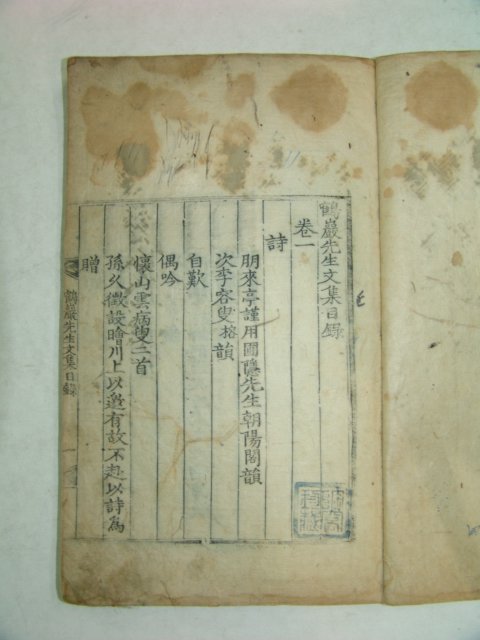 鶴巖先生文集目錄
卷一
詩
朋來亭謹用圃隱先生朝陽閣韻
次李容叟榕韻
自歎
偶吟
懷山雲病叟二首
孫久徵設膾川上以邀有故不赴以詩爲
贈
鶴巖先生文集目錄